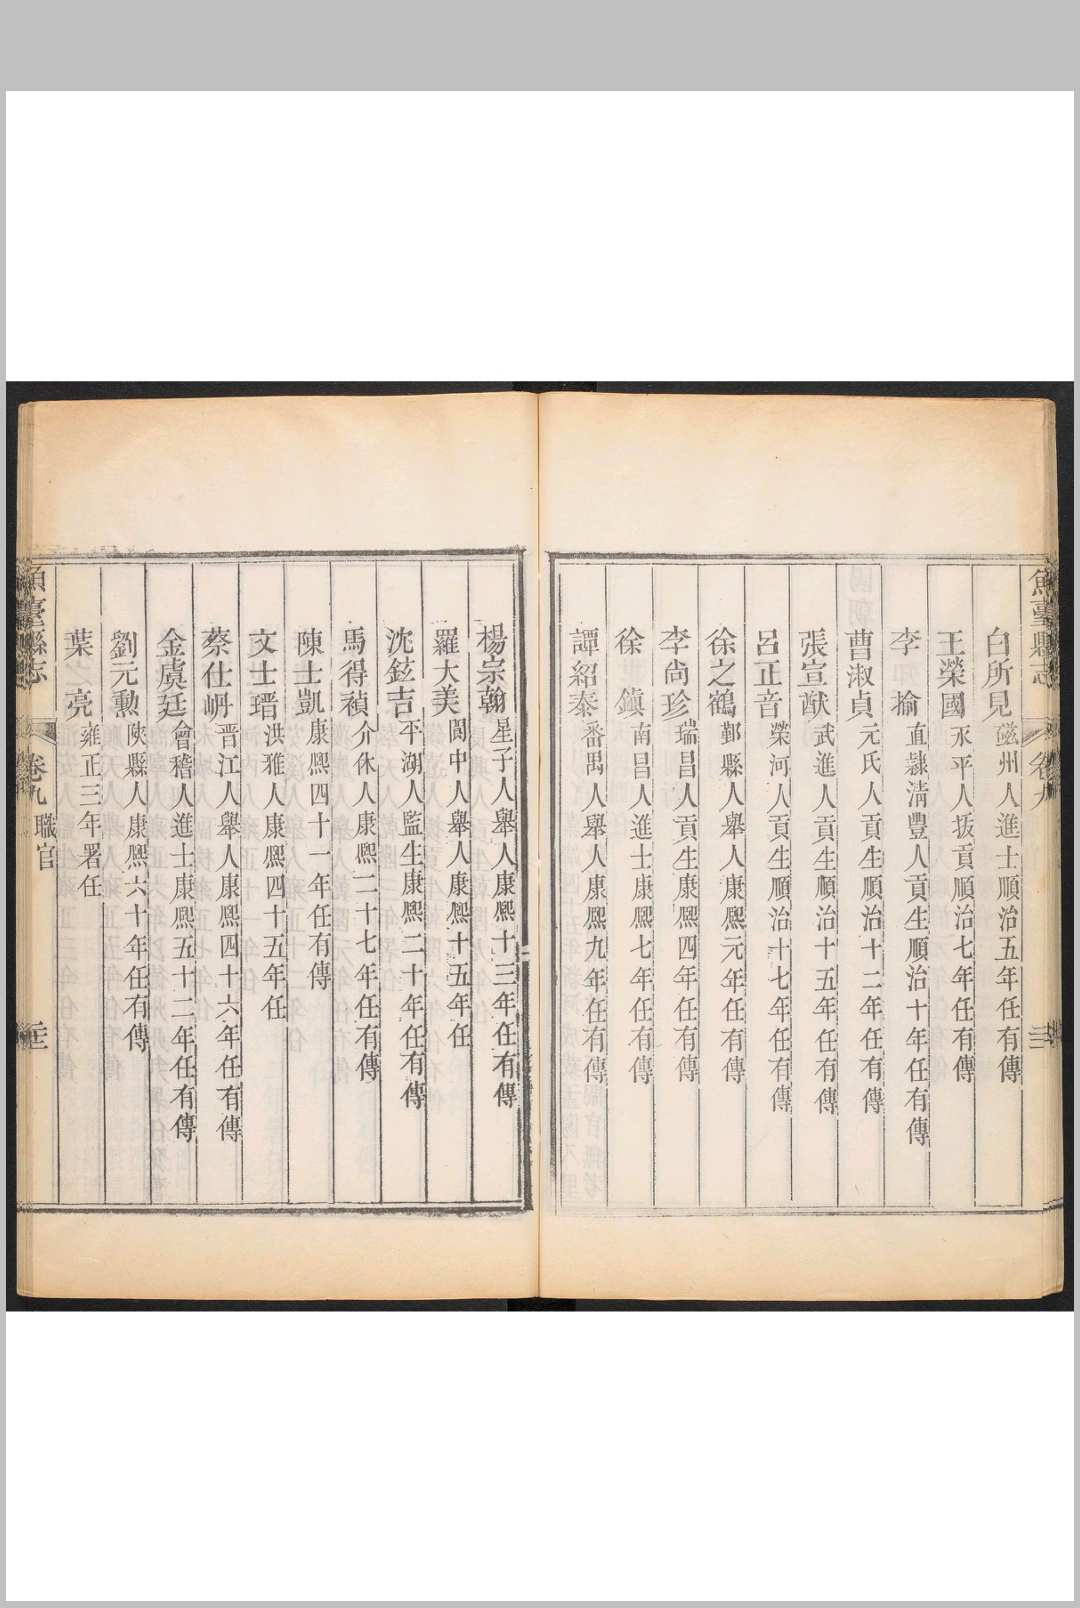 魚臺縣志
卷九
白所見磁州人進士順治五年任有傳
王榮國永平人拔貢順治七年任有傳
李 掄直隸淸豐人貢生順治十年任有傳
曹淑貞元氏人貢生順治十二年任有傳
張宣猷武進人貢生順治十五年任有傳
呂正音榮河人貢生順治十七年任有傳
徐之鶴鄞縣人舉人康熙元年任有傳
李尙珍瑞昌人貢生康熙四年任有傳
徐 鎮南昌人進士康熙七年任有傳
譚紹泰番禺人舉人康熙九年任有傳
楊宗翰星子人舉人康熙十三年任有傳
羅大美閬中人舉人康熙十五年任
沈鉉吉平湖人監生康熙二十年任有傳
馬得禎介休人康熙二十七年任有傳
陳士凱康熙四十一年任有傳
文士瑨洪雅人康熙四十五年任
蔡仕舢晋江人舉人康熙四十六年任有傳
金虞廷會稽人進士康熙五十二年任有傳
劉元勲陜縣人康熙六十年任有傳
葉 亮雍正三年署任
魚臺縣志
卷九 職官